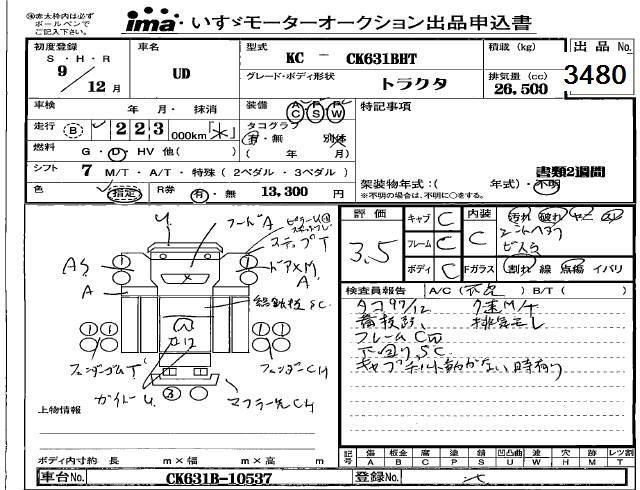 ※赤太枠内は必ずボールペンでご記入下さい。
ima いすゞモーターオークション出品申込書
初度登録 S・H・R 9 / 12 月
車名 UD
型式 KC - CK631BHT
積載 (kg)
出品 No. 3480
グレード・ボディ形状 トラクタ
排気量 (cc) 26,500
車検 年 月・ 抹消
装備 AC PS PW
特記事項
走行 B 223,000km
タコグラフ 有・無 別体
( 年 月)
燃料 G・D・HV 他( )
シフト 7 M/T・A/T・特殊 (2ペダル・3ペダル)
書類2週間
架装物年式:( 年式)・不明
※不明の場合は、不明に○をする。
色 指定 R券 有・無 13,300 円
評価 3.5
キャブ C
フレーム C
ボディ C
内装 C
汚れ 破れ
Fガラス 割れ 線 点傷 イバリ
フードA
ステップT
ドアXM
A
縞鉄板SC
フェンダーCH
マフラー先CH
ガイドU
上物情報
検査員報告 A/C( 不良 ) B/T( )
タコ97/12 7速M/T
排気モレ
フレームC
下回りSC
キャブチルト動かない時有り
ボディ内寸約 長 m×幅 m×高 m
記号 傷 A 板金 B 腐 C 塗 P 錆 S 凹凸曲 U 波 W 穴 H 跡 M レツ割 T
車台No. CK631B-10537
登録No.